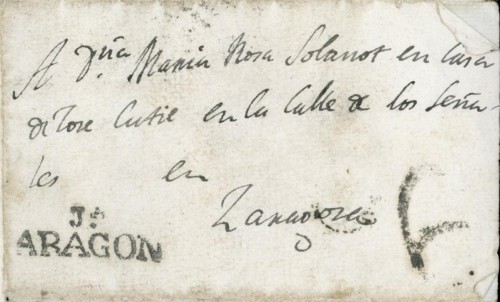 A Dña. Maria Rosa Solanot en Casa
de Jose Cutie en la Calle de los Seña
les en
Zaragoza
Ja.
ARAGON